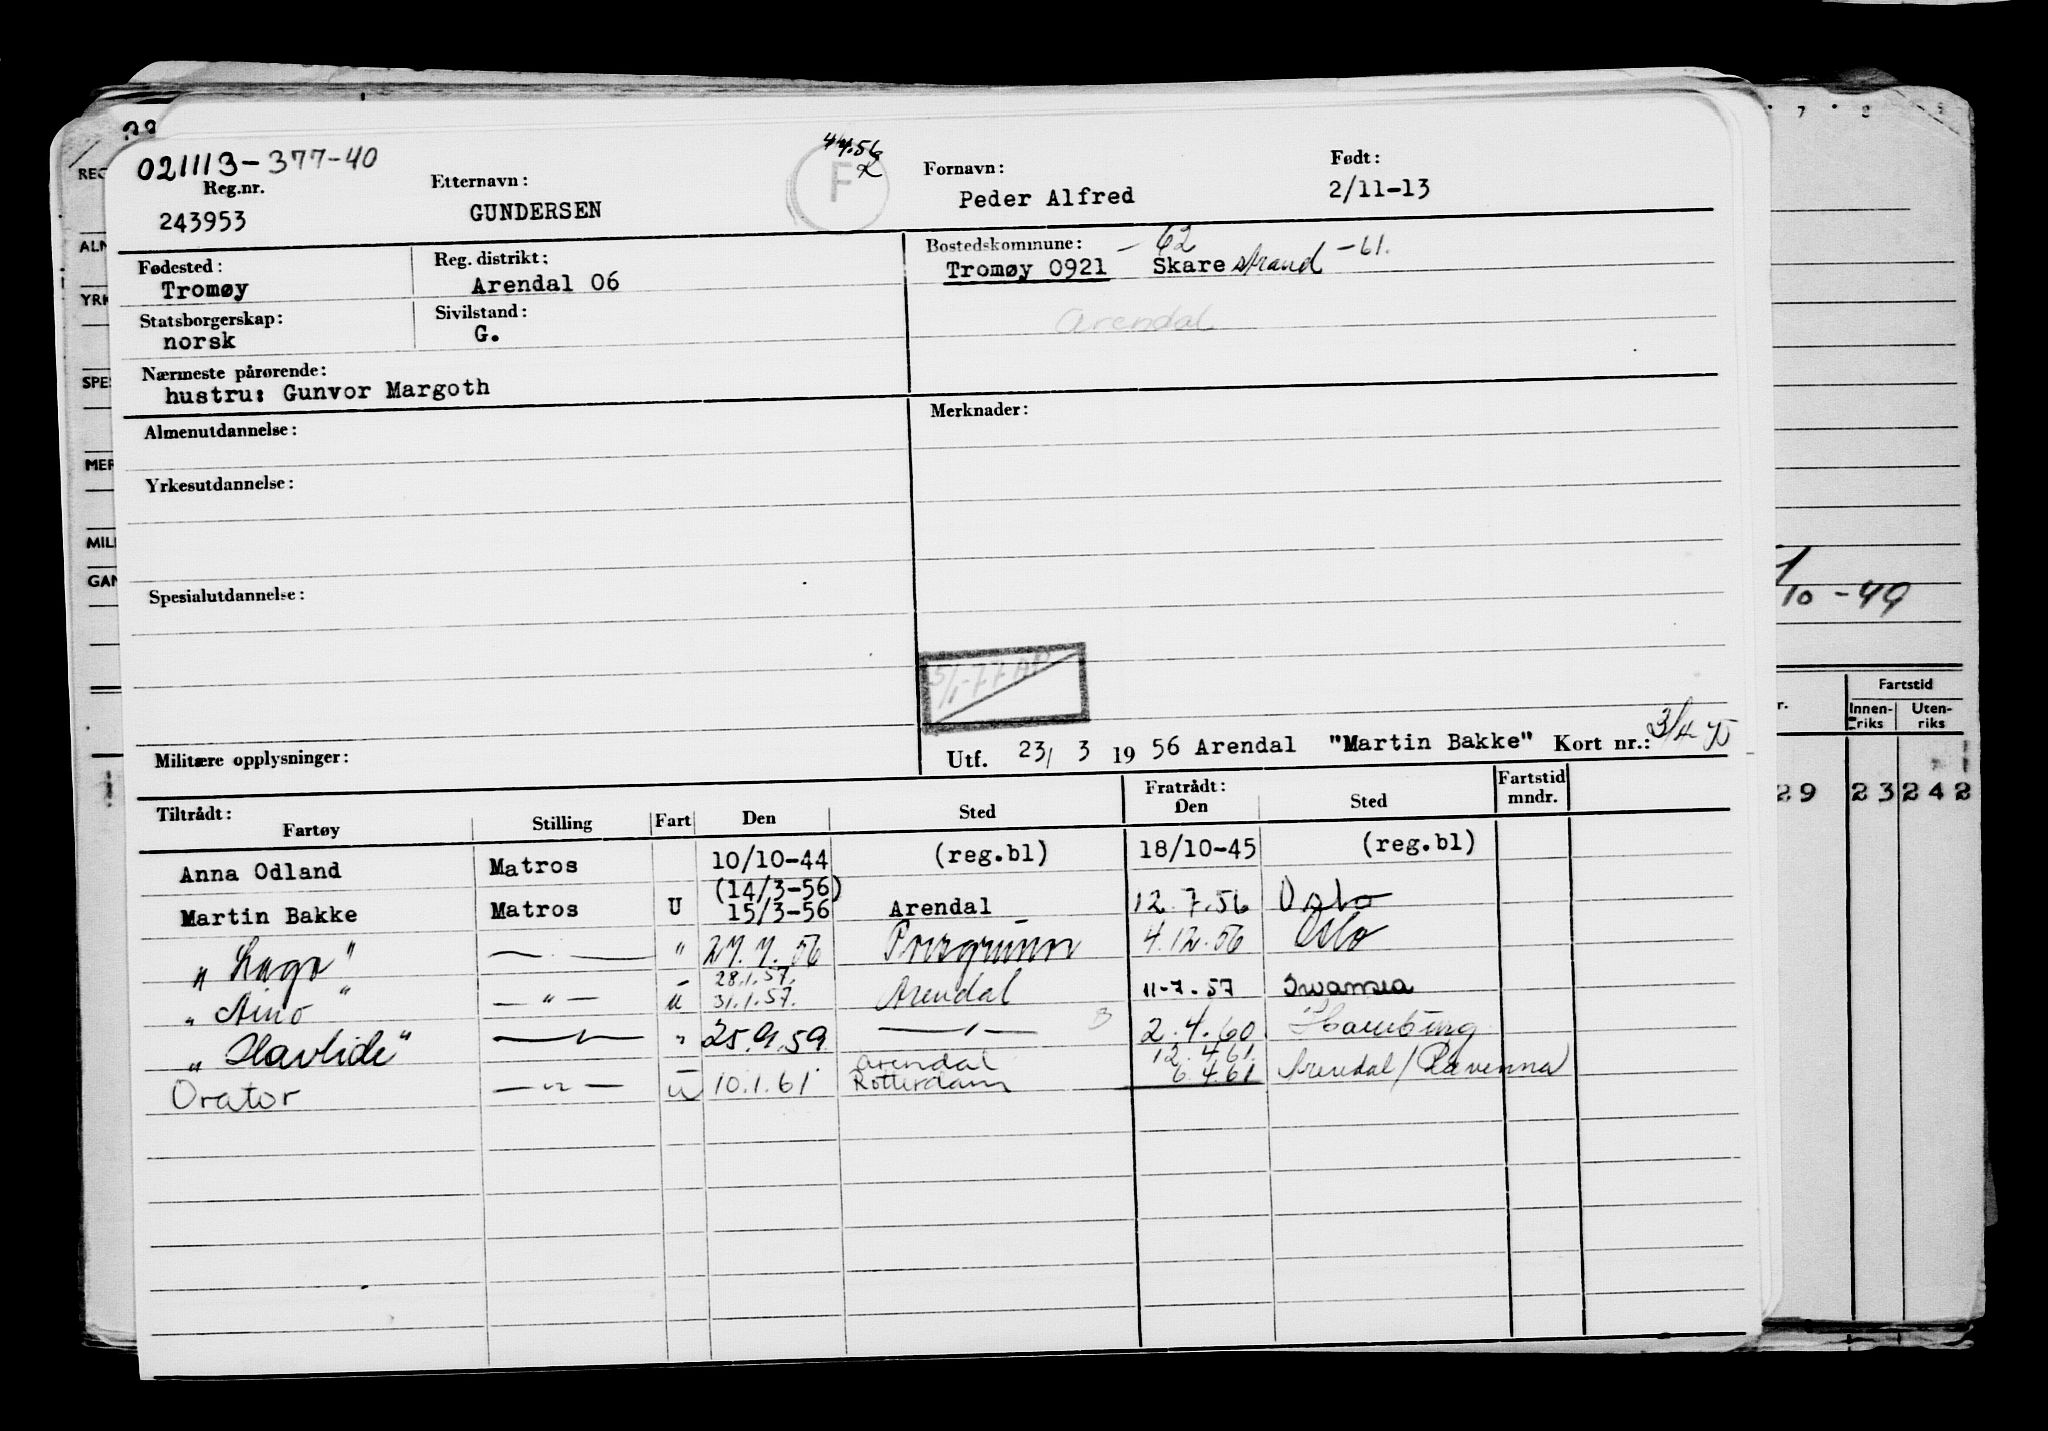 021113-377-40
4/4.56
Reg.nr. Etternavn: F Fornavn: Født:
243953 GUNDERSEN Peder Alfred 2/11-13
Fødested: Reg. distrikt: Bostedskommune: - 62
Tromøy Arendal 06 Tromøy 0921 Skare strand -61.
Statsborgerskap: Sivilstand: Arendal
norsk G.
Nærmeste pårørende:
hustru: Gunvor Margoth
Almenutdannelse: Merknader:
Yrkesutdannelse:
Spesialutdannelse:
Militære opplysninger: Utf. 23/ 3 1956 Arendal "Martin Bakke" Kort nr.:
Tiltrådt: Fratrådt: Fartstid
Fartøy Stilling Fart Den Sted Den Sted mndr.
Anna Odland Matros 10/10-44 (reg.bl) 18/10-45 (reg.bl)
(14/3-56)
Martin Bakke Matros U 15/3-56 Arendal 12.7.56 Oslo
" — " 27.7.56 Porsgrunn 4.12.56 Oslo
28.1.57.
" Aino " — " — U 31.1.57. Arendal 11-7.57 Swansea
" Havlide" — " — " 25.9.59 — " — 2.4.60 Hamburg
Arendal 12.4.61.
Orator — " — U 10.1.61 Rotterdam 6.4.61 Arendal/Ravenna
REG
ALM
YRK
SPES
MER
MILI
GAN
7 8 9
/10-49
Fartstid
r. Innen-riks Uten-riks
29 23 242